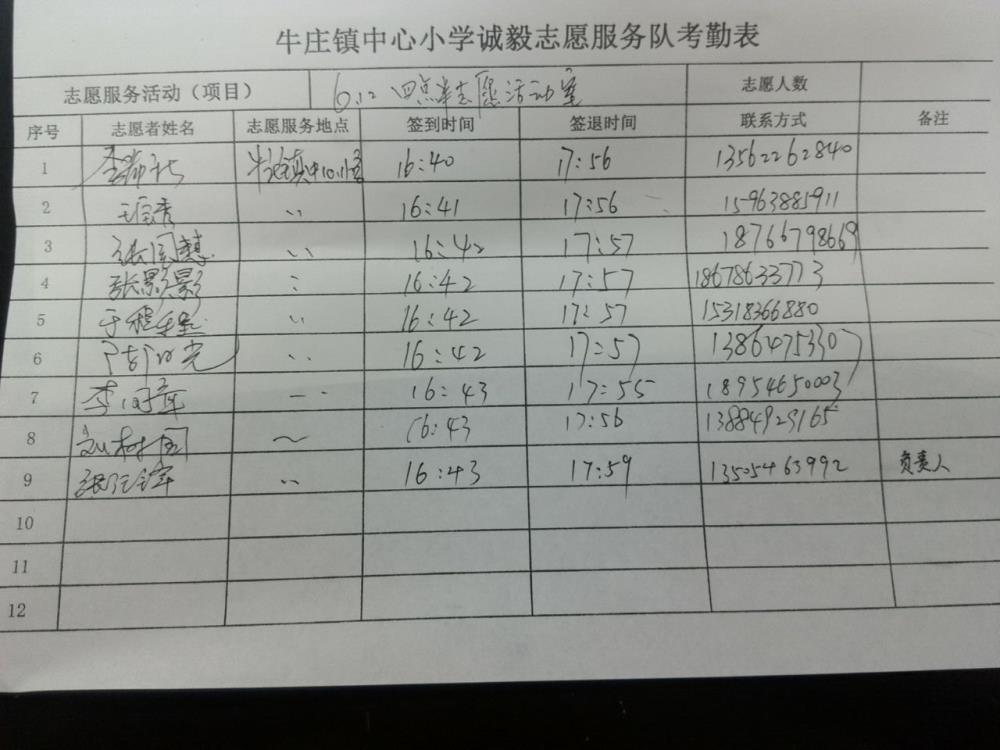 牛庄镇中心小学诚毅志愿服务队考勤表
志愿服务活动（项目） 6.12 四点半志愿活动室 志愿人数
序号 志愿者姓名 志愿服务地点 签到时间 签退时间 联系方式 备注
1 牛庄镇中心小学 16:40 17:56 13562262840
2 〃 16:41 17:56 15963885911
3 〃 16:42 17:57 18766798669
4 张影影 〃 16:42 17:57 18678633773
5 〃 16:42 17:57 15318366880
6 〃 16:42 17:57 13864753307
7 〃 16:43 17:55 18954650003
8 刘树国 〃 16:43 17:56 13884929165
9 〃 16:43 17:59 13505463992 负责人
10
11
12